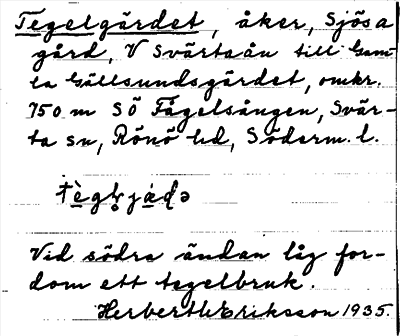 Tegelgärdet, åker, Sjösa
gård, V Svärtaån till Gam-
la Gällsundsgärdet, omkr.
750 m SÖ Fågelsången, Svär-
ta sn, Rönö hd, Söderm. l.
Vid södra ändan låg for-
dom ett tegelbruk.
Herbert Eriksson 1935.